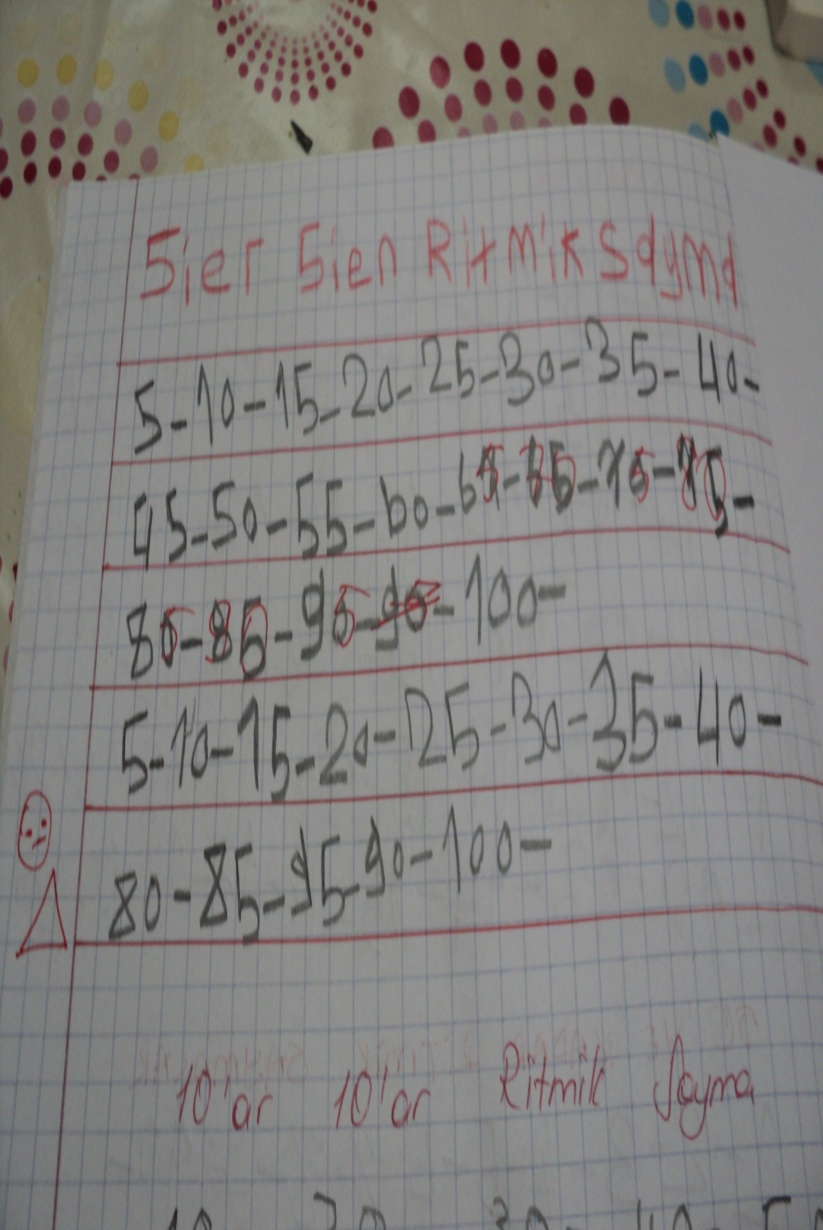 5ier 5ien Ritmik Sayma
5-10-15-20-25-30-35-40-
45-50-55-60-65-
100-
5-10-15-20-25-30-35-40-
80-85-95-90-100-
10'ar 10'ar Ritmik Sayma